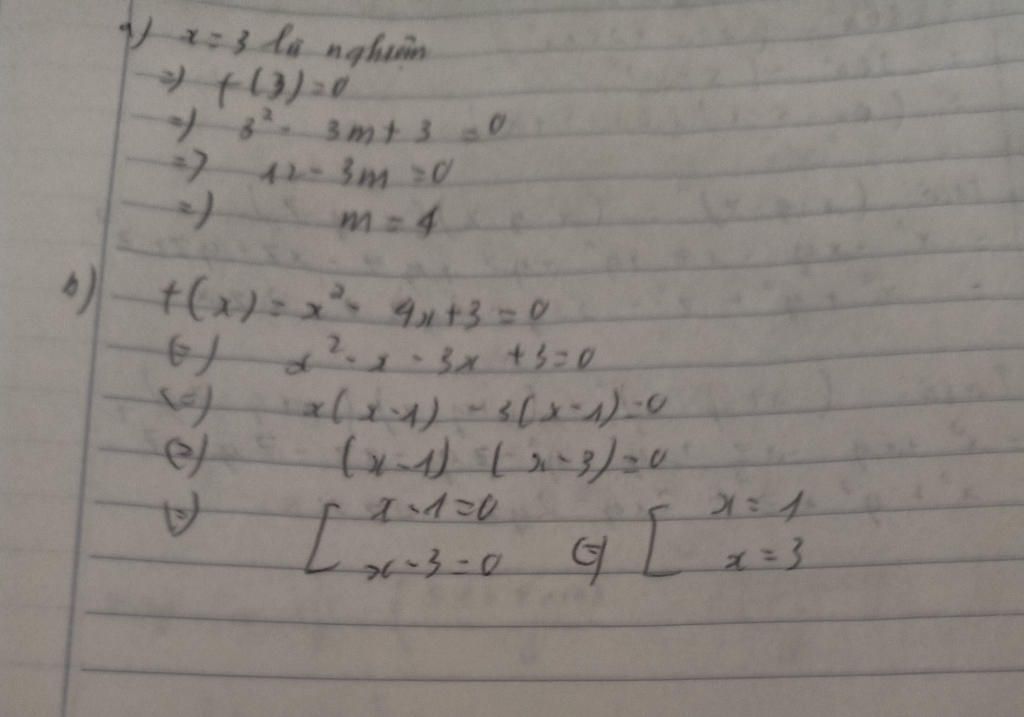 a) x = 3 là nghiệm
=) f(3) = 0
=) 3² - 3m + 3 = 0
=) 12 - 3m = 0
=) m = 4
b) f(x) = x² - 4x + 3 = 0
(=) x² - x - 3x + 3 = 0
(=) x(x-1) - 3(x-1) = 0
(=) (x-1) (x-3) = 0
(=) [ x-1 = 0 (=) [ x = 1
x-3 = 0 x = 3